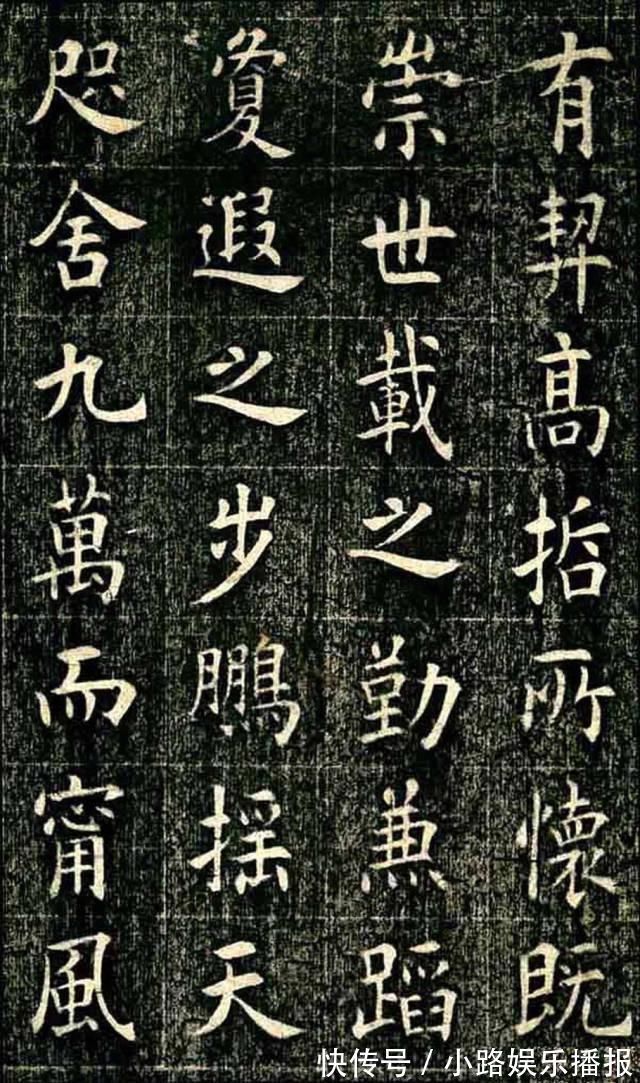 有契高哲所懷既
崇世載之勤兼蹈
敻遐之步鵬摇天
咫舍九萬而甯風
快传号 / 小路娱乐播报